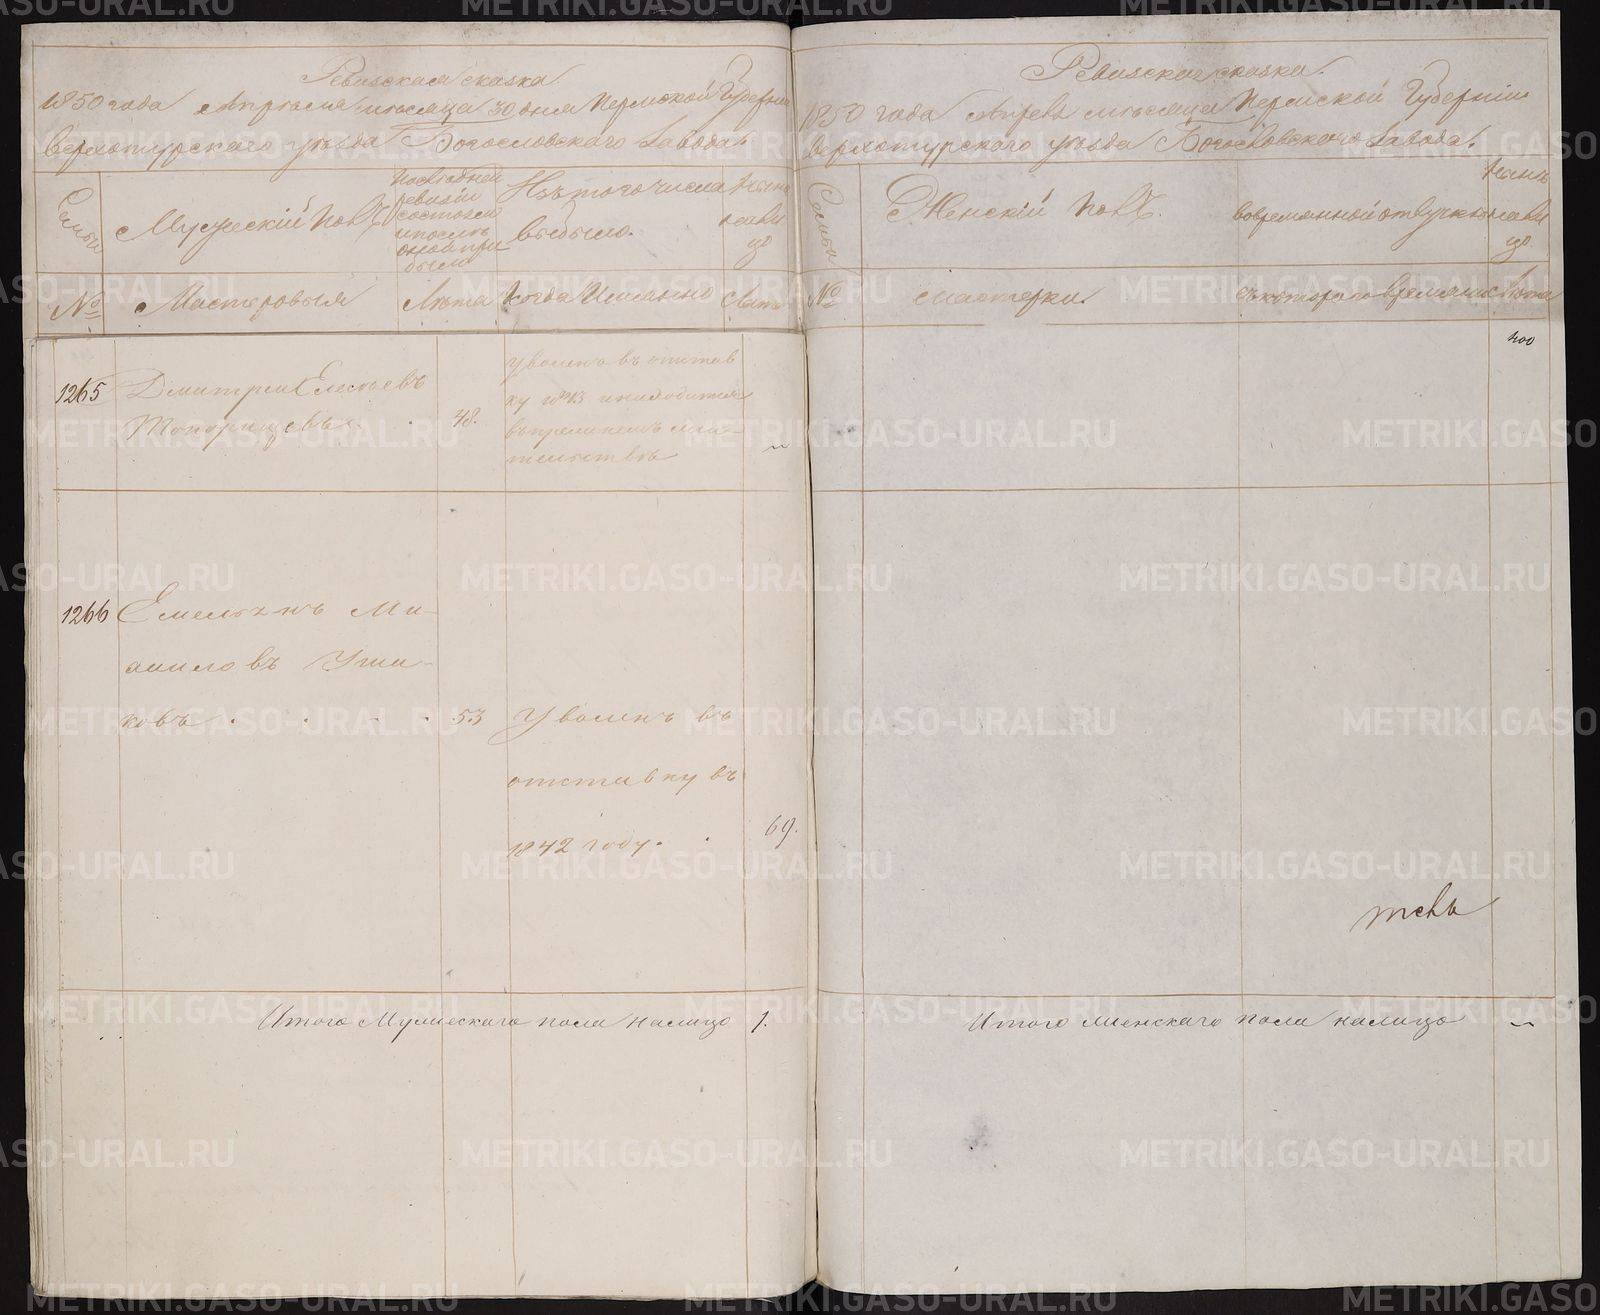 Ревизская сказка
1850 года Апреля месяца 30 дня Пермской Губернии
Верхотурского уезда Богословского Завода.
Семьи
Мужеский полъ
После дней ревизiи состояло и после оной при было
Изъ того числа выбыло.
Ныне на ли цо
№
Мастеровыя
Лета
Когда Именно
Лета
1265
Дмитрей Елесеевъ
Топорищевъ
48.
уволенъ въ отстав
ку 1843 и находится
въ
тельстве
1266
Емельянъ Ми
аиловъ Уши
ковъ
53
Уволенъ въ
отставку въ
1842 году.
69.
Итого Мужескаго пола налицо 1.
Ревизская сказка.
1850 года Апреля месяца Пермской Губернiи
Верхотурского уезда Богословского Завода.
Семьи
Женскiй полъ.
Во временной отлучке
Ныне на ли цо
№
мастерки.
съ котораго времяни
Лета
400
Итого женскаго пола налицо
METRIKI.GASO-URAL.RU